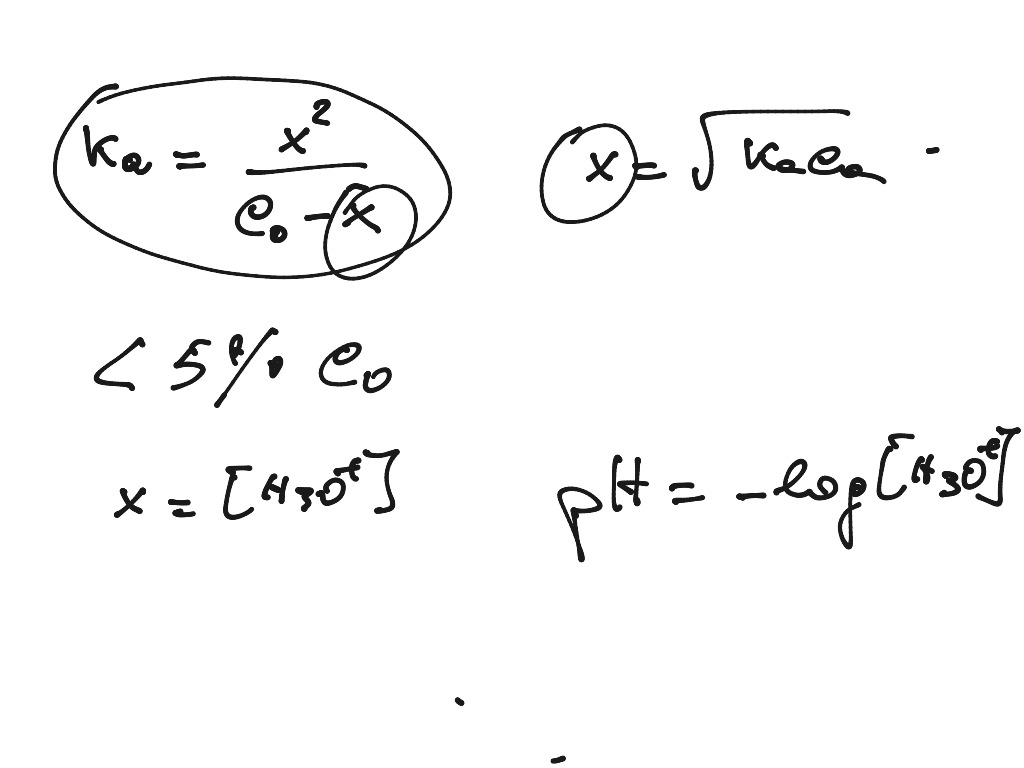 Ka = x² / (C₀ - x)
x = √(KaCa)
< 5% C₀
x = [H₃O⁺]
pH = -log[H₃O⁺]